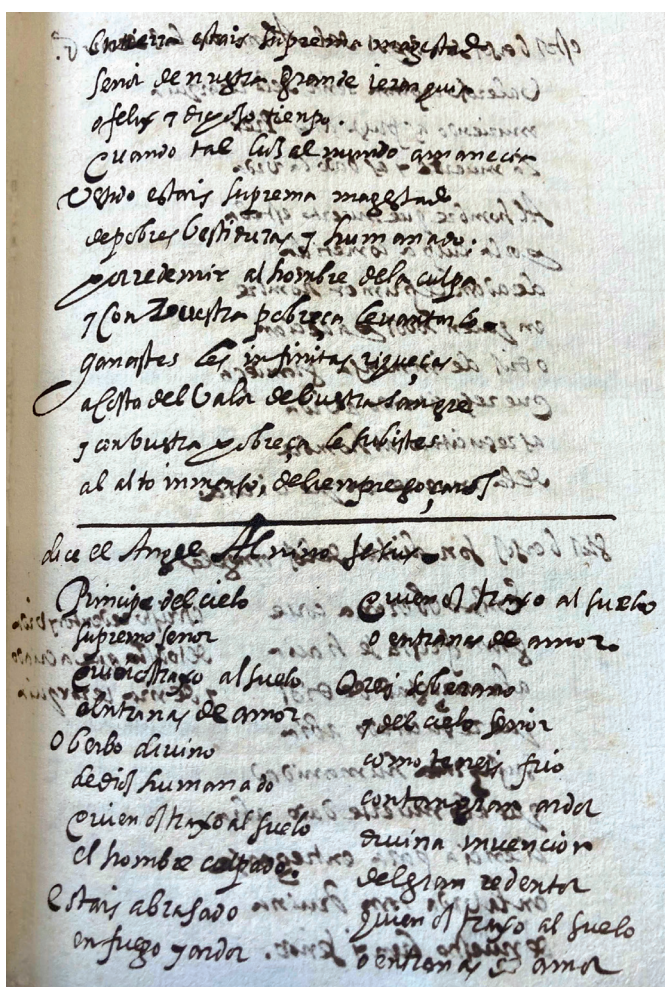 En tierra estais suprema magestad
señor de nuestra grande ierarquia
o felix y dixoso tienpo.
Quando tal luz al mundo amanecia
Vestido estais suprema magestad
de pobres bestiduras y humanado.
por redemir al hombre de la culpa
y con vuestra pobreça levantarle
ganastes les infinitas riqueças
a costo del valor de bustra sangre
y con bustra pobreça le subistes
al alto inmenso, de siempre goçaros
dice el Angel Al nino Jesus.
Principe del cielo
supremo señor
Quien os traxo al suelo
o entranas de amor
O berbo divino
de dios humanado
Quien os traxo al suelo
el hombre culpado.
Estais abrasado
en fuego y ardor
Quien os traxo al suelo
o entranas de amor.
O rei soberano
y del cielo señor
como teneis frio
con tan gran ardor
divina invencion
del gran redentor
Quien os traxo al suelo
o entranas de amor